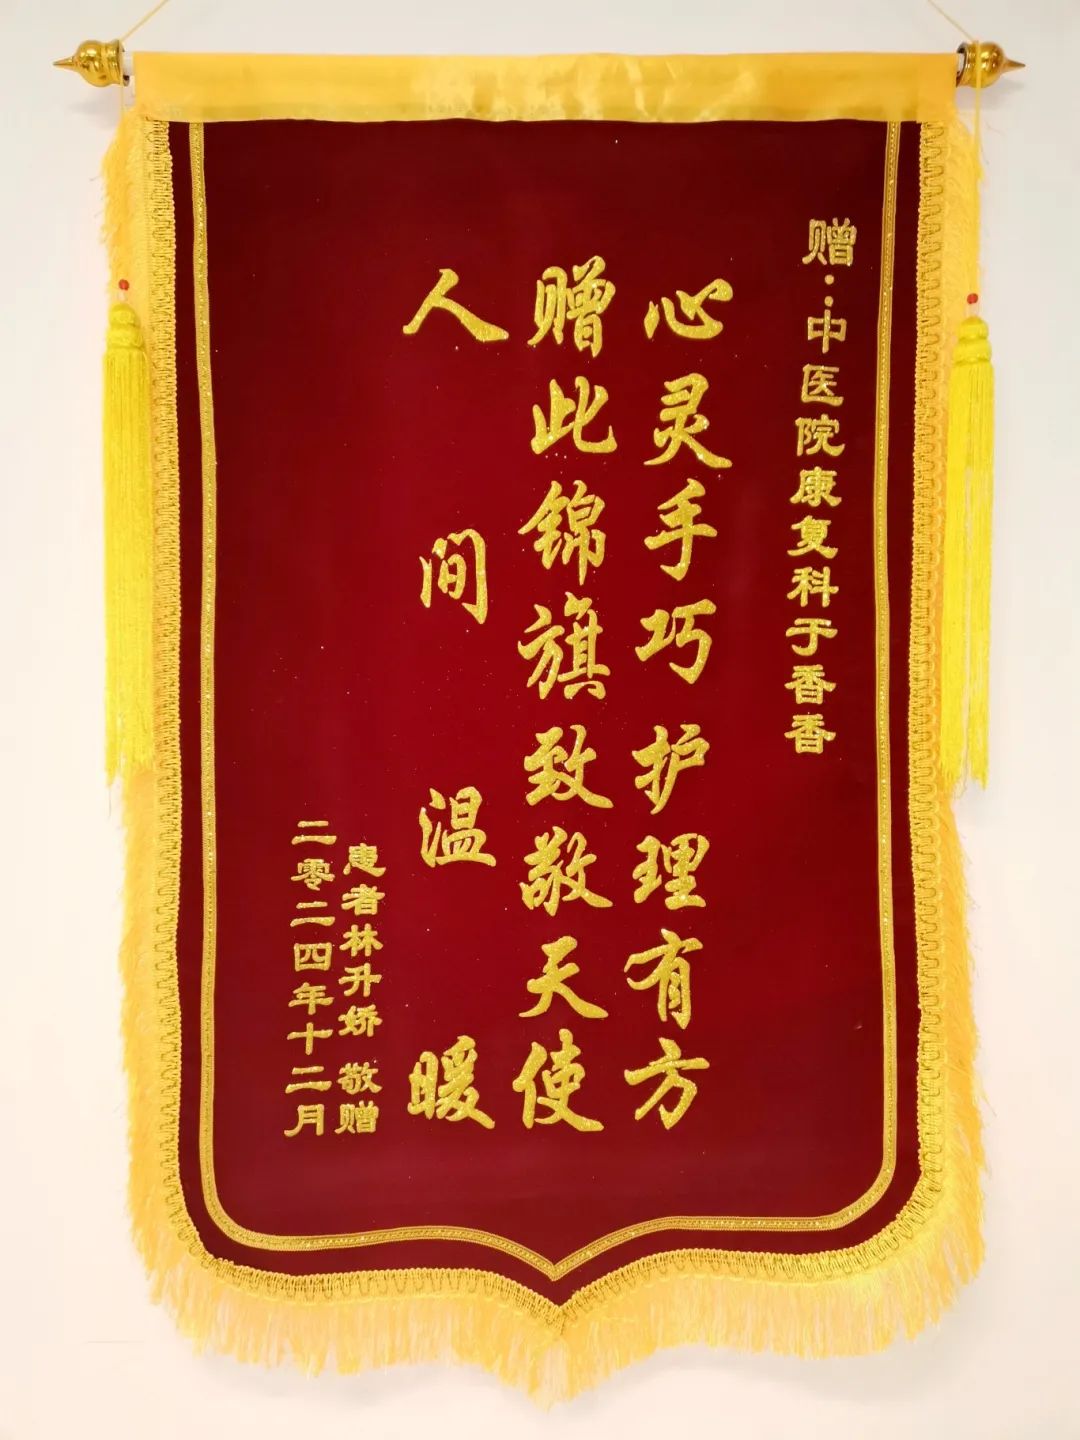 赠:中医院康复科于香香
心灵手巧护理有方
赠此锦旗致敬天使
人间温暖
患者林升娇 敬赠
二零二四年十二月